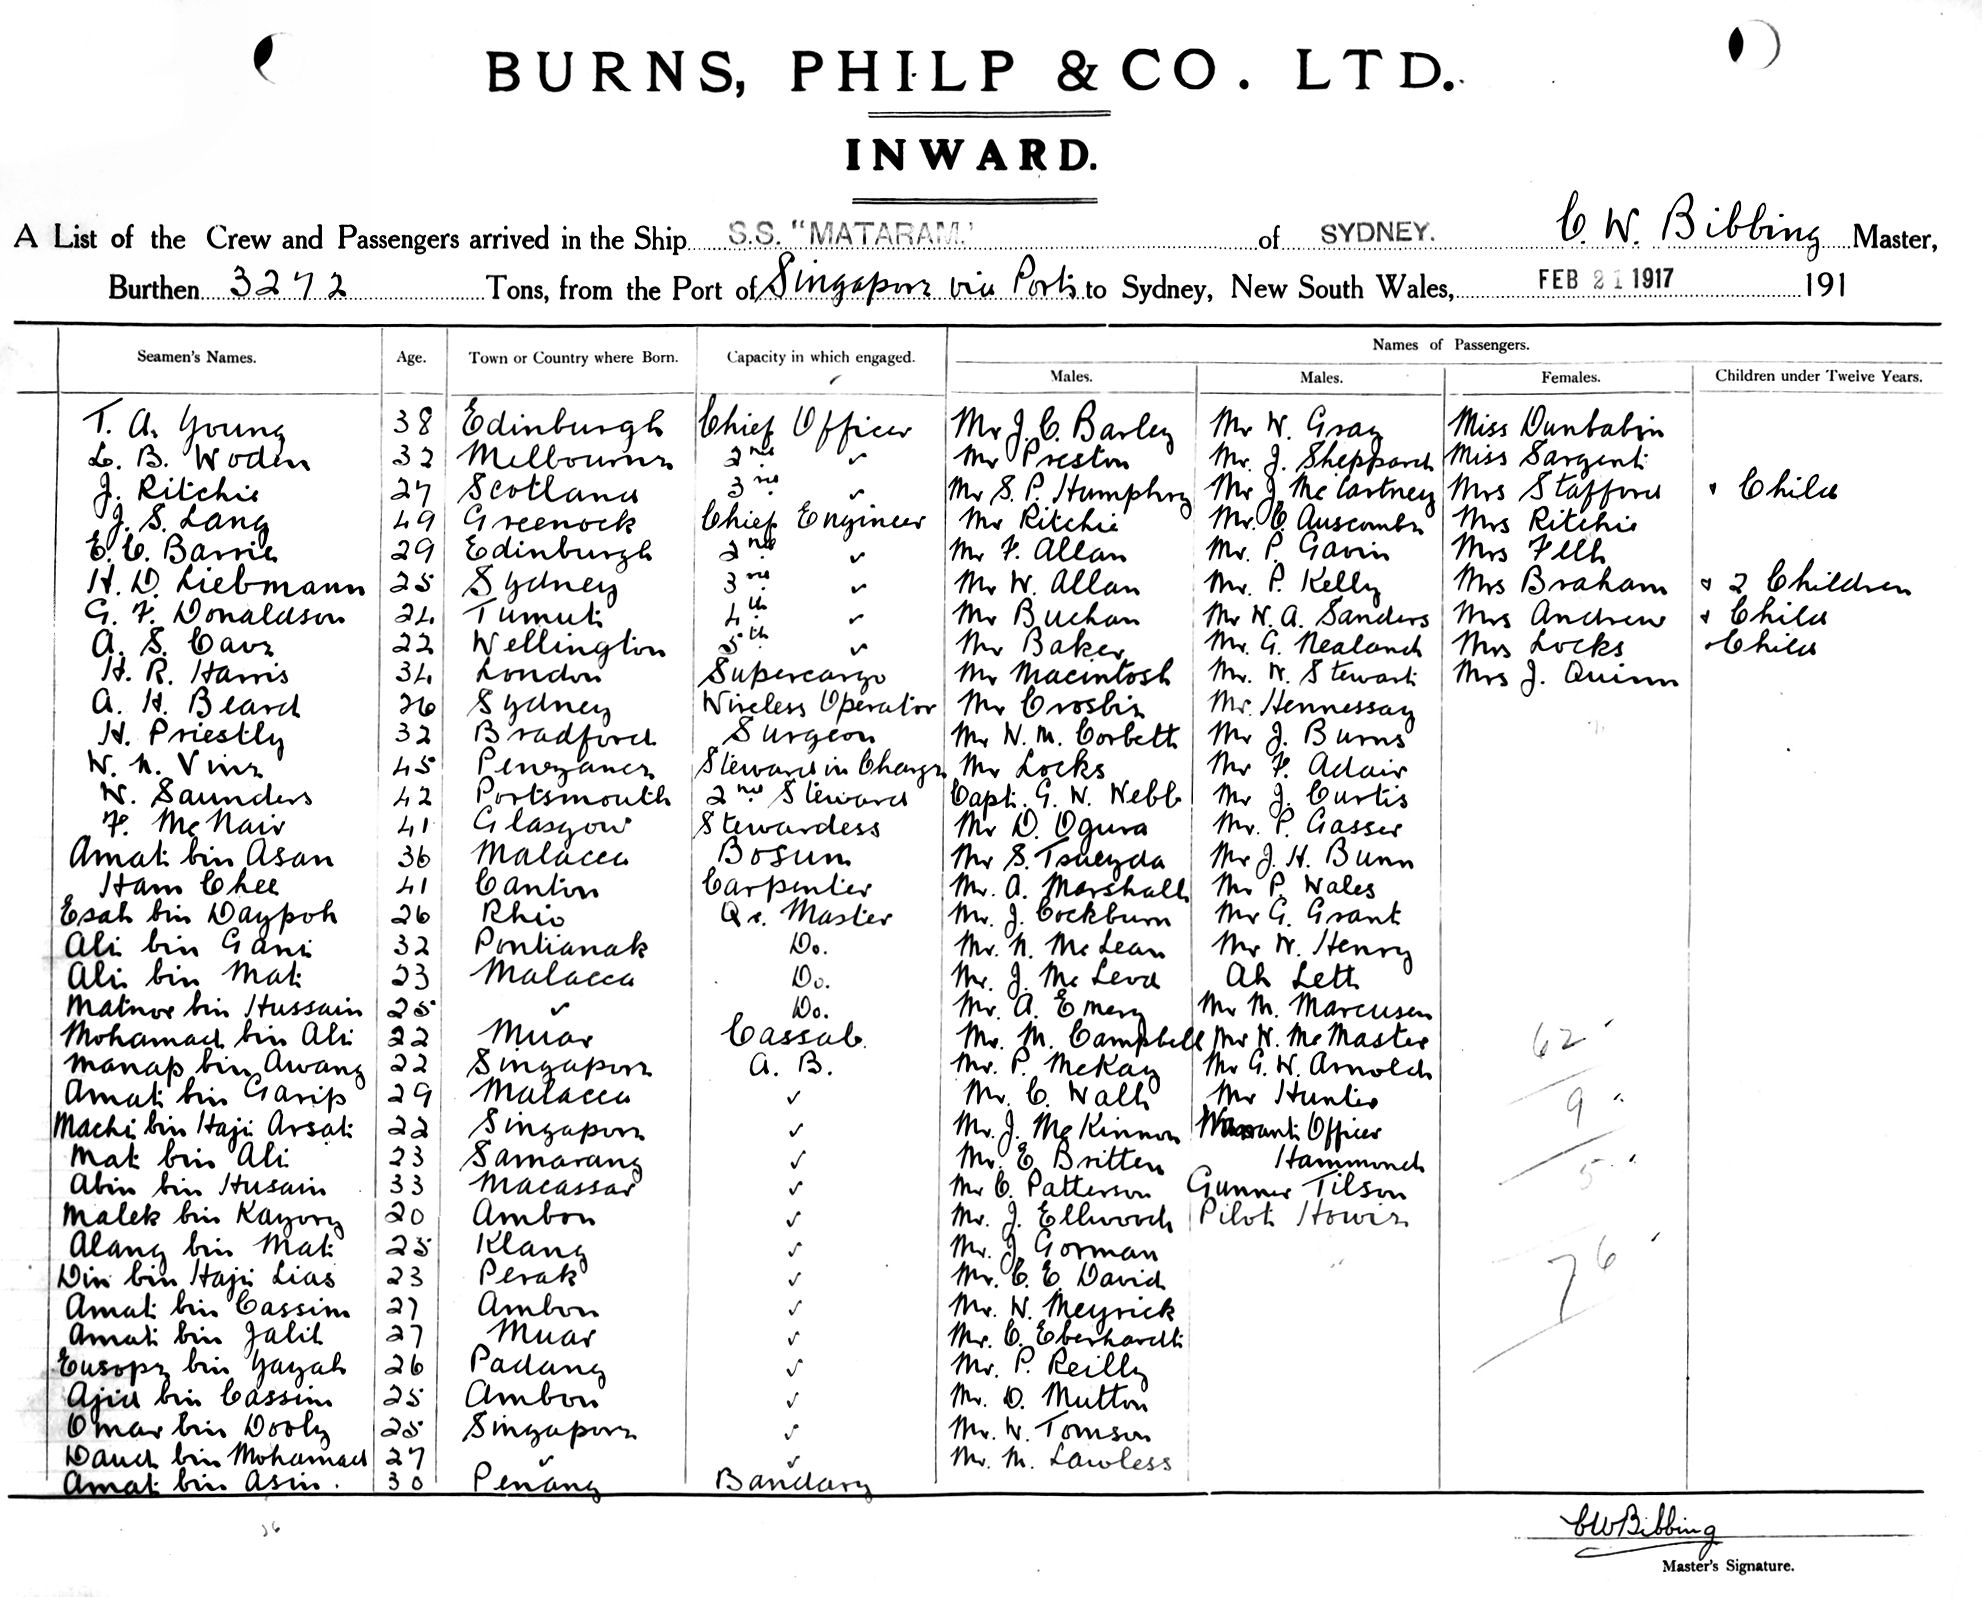 BURNS, PHILP & CO. LTD.
INWARD.
A List of the Crew and Passengers arrived in the Ship S.S. "MATARAM." of SYDNEY. C. W. Bibbing Master,
Burthen 3272 Tons, from the Port of Singapore via Ports to Sydney, New South Wales, FEB 21 1917 191
Names of Passengers.
Seamen's Names. Age. Town or Country where Born. Capacity in which engaged. Males. Males. Females. Children under Twelve Years.
T. A. Young 38 Edinburgh Chief Officer Mr J. C. Barley Mr W. Gray Miss Dunbabin
L. B. Woden 32 Melbourne 2nd ✓ Mr Preston Mr. J. Sheppard Miss Sargent
J. Ritchie 27 Scotland 3rd ✓ Mr S. P. Humphry Mr J. McCartney Mrs Stafford & Child
J. S. Lang 49 Greenock Chief Engineer Mr Ritchie Mr. C. Auscombe Mrs Ritchie
E. C. Barrie 29 Edinburgh 2nd ✓ Mr F. Allan Mr. P. Gavin Mrs Fell
H. D. Liebmann 25 Sydney 3rd ✓ Mr W. Allan Mr. P. Kelly Mrs Braham & 2 Children
G. F. Donaldson 24 Tumut 4th ✓ Mr Buchan Mr W. A. Sanders Mrs Andrew & Child
A. S. Cave 22 Wellington 5th ✓ Mr Baker Mr. G. Nealand Mrs Locks & Child
H. R. Harris 34 London Supercargo Mr Macintosh Mr. W. Stewart Mrs J. Quinn
A. H. Beard 26 Sydney Wireless Operator Mr Crosbie Mr. Hennessay
H. Priestly 32 Bradford Surgeon Mr W. M. Corbett Mr J. Burns
W. N. Vine 45 Penzance Steward in Charge Mr Locks Mr F. Adair
W. Saunders 42 Portsmouth 2nd Steward Capt. G. W. Webb Mr J. Curtis
F. McNair 41 Glasgow Stewardess Mr D. Ogura Mr. P. Gasser
Amat bin Asan 36 Malacca Bosun Mr S. Mr J. H. Bunn
Ham Chee 41 Canton Carpenter Mr. A. Marshall Mr P. Wales
Esah bin Daypoh 26 Rhio Qr. Master Mr. J. Cockburn Mr G. Grant
Ali bin Gani 32 Pontianak Do. Mr. N. McLean Mr W. Henry
Ali bin Mat 23 Malacca Do. Mr. J. McLeod Ah Lett
Matnor bin Hussain 25 ✓ Do. Mr. A. Emery Mr M. Marcusen
Mohamad bin Ali 22 Muar Cassab. Mr. M. Campbell Mr W. McMaster
Manap bin Awang 22 Singapore A. B. Mr. P. McKay Mr G. W. Arnold 62
Amat bin Garip 29 Malacca ✓ Mr. C. Wall Mr Hunter 9
Machi bin Haji Arsat 22 Singapore ✓ Mr. J. McKinnon Warrant Officer
Mat bin Ali 23 Samarang ✓ Mr. E. Britten Hammond 5
Abin bin Husain 33 Macassar ✓ Mr C. Patterson Gunner Tilson
Malek bin Kayory 20 Ambon ✓ Mr. J. Ellwood Pilot Howie
Alang bin Mat 25 Klang ✓ Mr. J. Gorman 76
Din bin Haji Lias 23 Perak ✓ Mr. C. E. David
Amat bin Cassim 27 Ambon ✓ Mr. W. Meyrick
Amat bin Jalil 27 Muar ✓ Mr. C. Eberhardt
Eusope bin Yayah 26 Padang ✓ Mr. P. Reilly
Ajid bin Cassim 25 Ambon ✓ Mr. D. Mutton
Omar bin Dooly 25 Singapore ✓ Mr. W. Tomson
Daud bin Mohamad 27 ✓ ✓ Mr. M. Lawless
Amat bin Asin. 30 Penang Bandary
36
CWBibbing
Master's Signature.